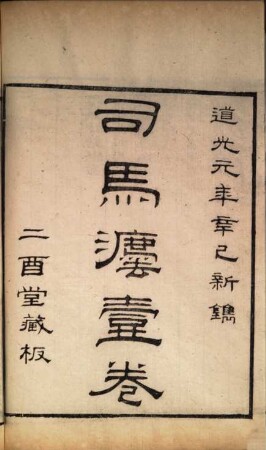 道光元年辛巳新鐫
司馬灋壹卷
二酉堂藏板